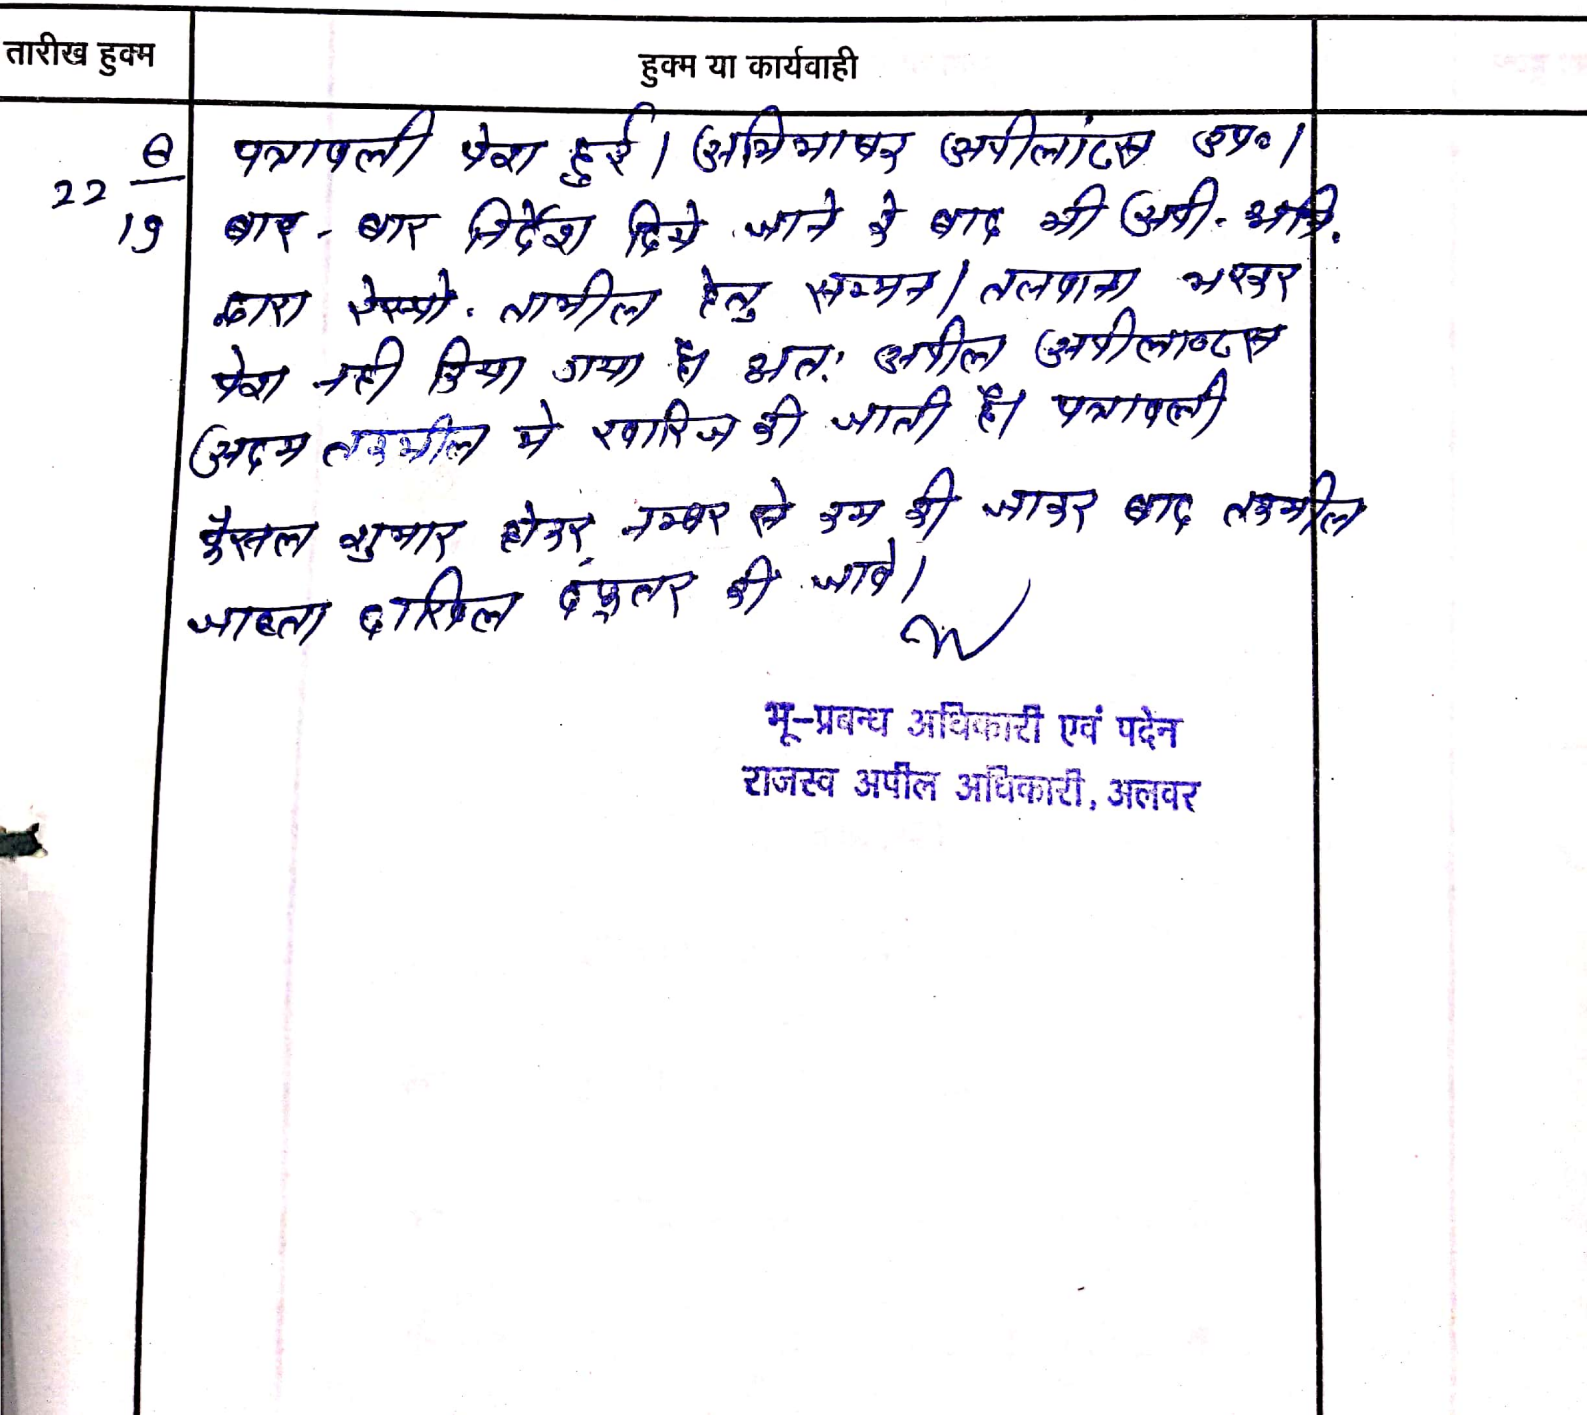 तारीख हुक्म
हुक्म या कार्यवाही
22 8/19
पत्रावली पेश हुई। अभिभाषक अपीलांटस उप०।
बार-बार निर्देश दिये जाने के बाद भी अपी. अभि.
द्वारा रेस्पो. तामील हेतु सम्मन/तलवाना भरकर
पेश नही किया गया है। अत: अपील अपीलाण्टस
अदम तकमील मे खारिज की जाती है। पत्रावली
फैसल शुमार होकर नम्बर से कम की जाकर बाद तकमील
जाब्ता दाखिल दफ्तर की जावे।
भू-प्रबन्ध अधिकारी एवं पदेन
राजस्व अपील अधिकारी, अलवर